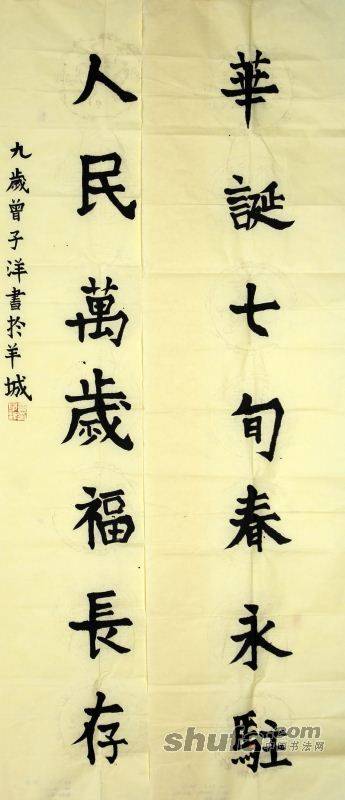 華誕七旬春永駐
人民萬歲福長存
九歲曾子洋書於羊城
shufa.com
中国书法网